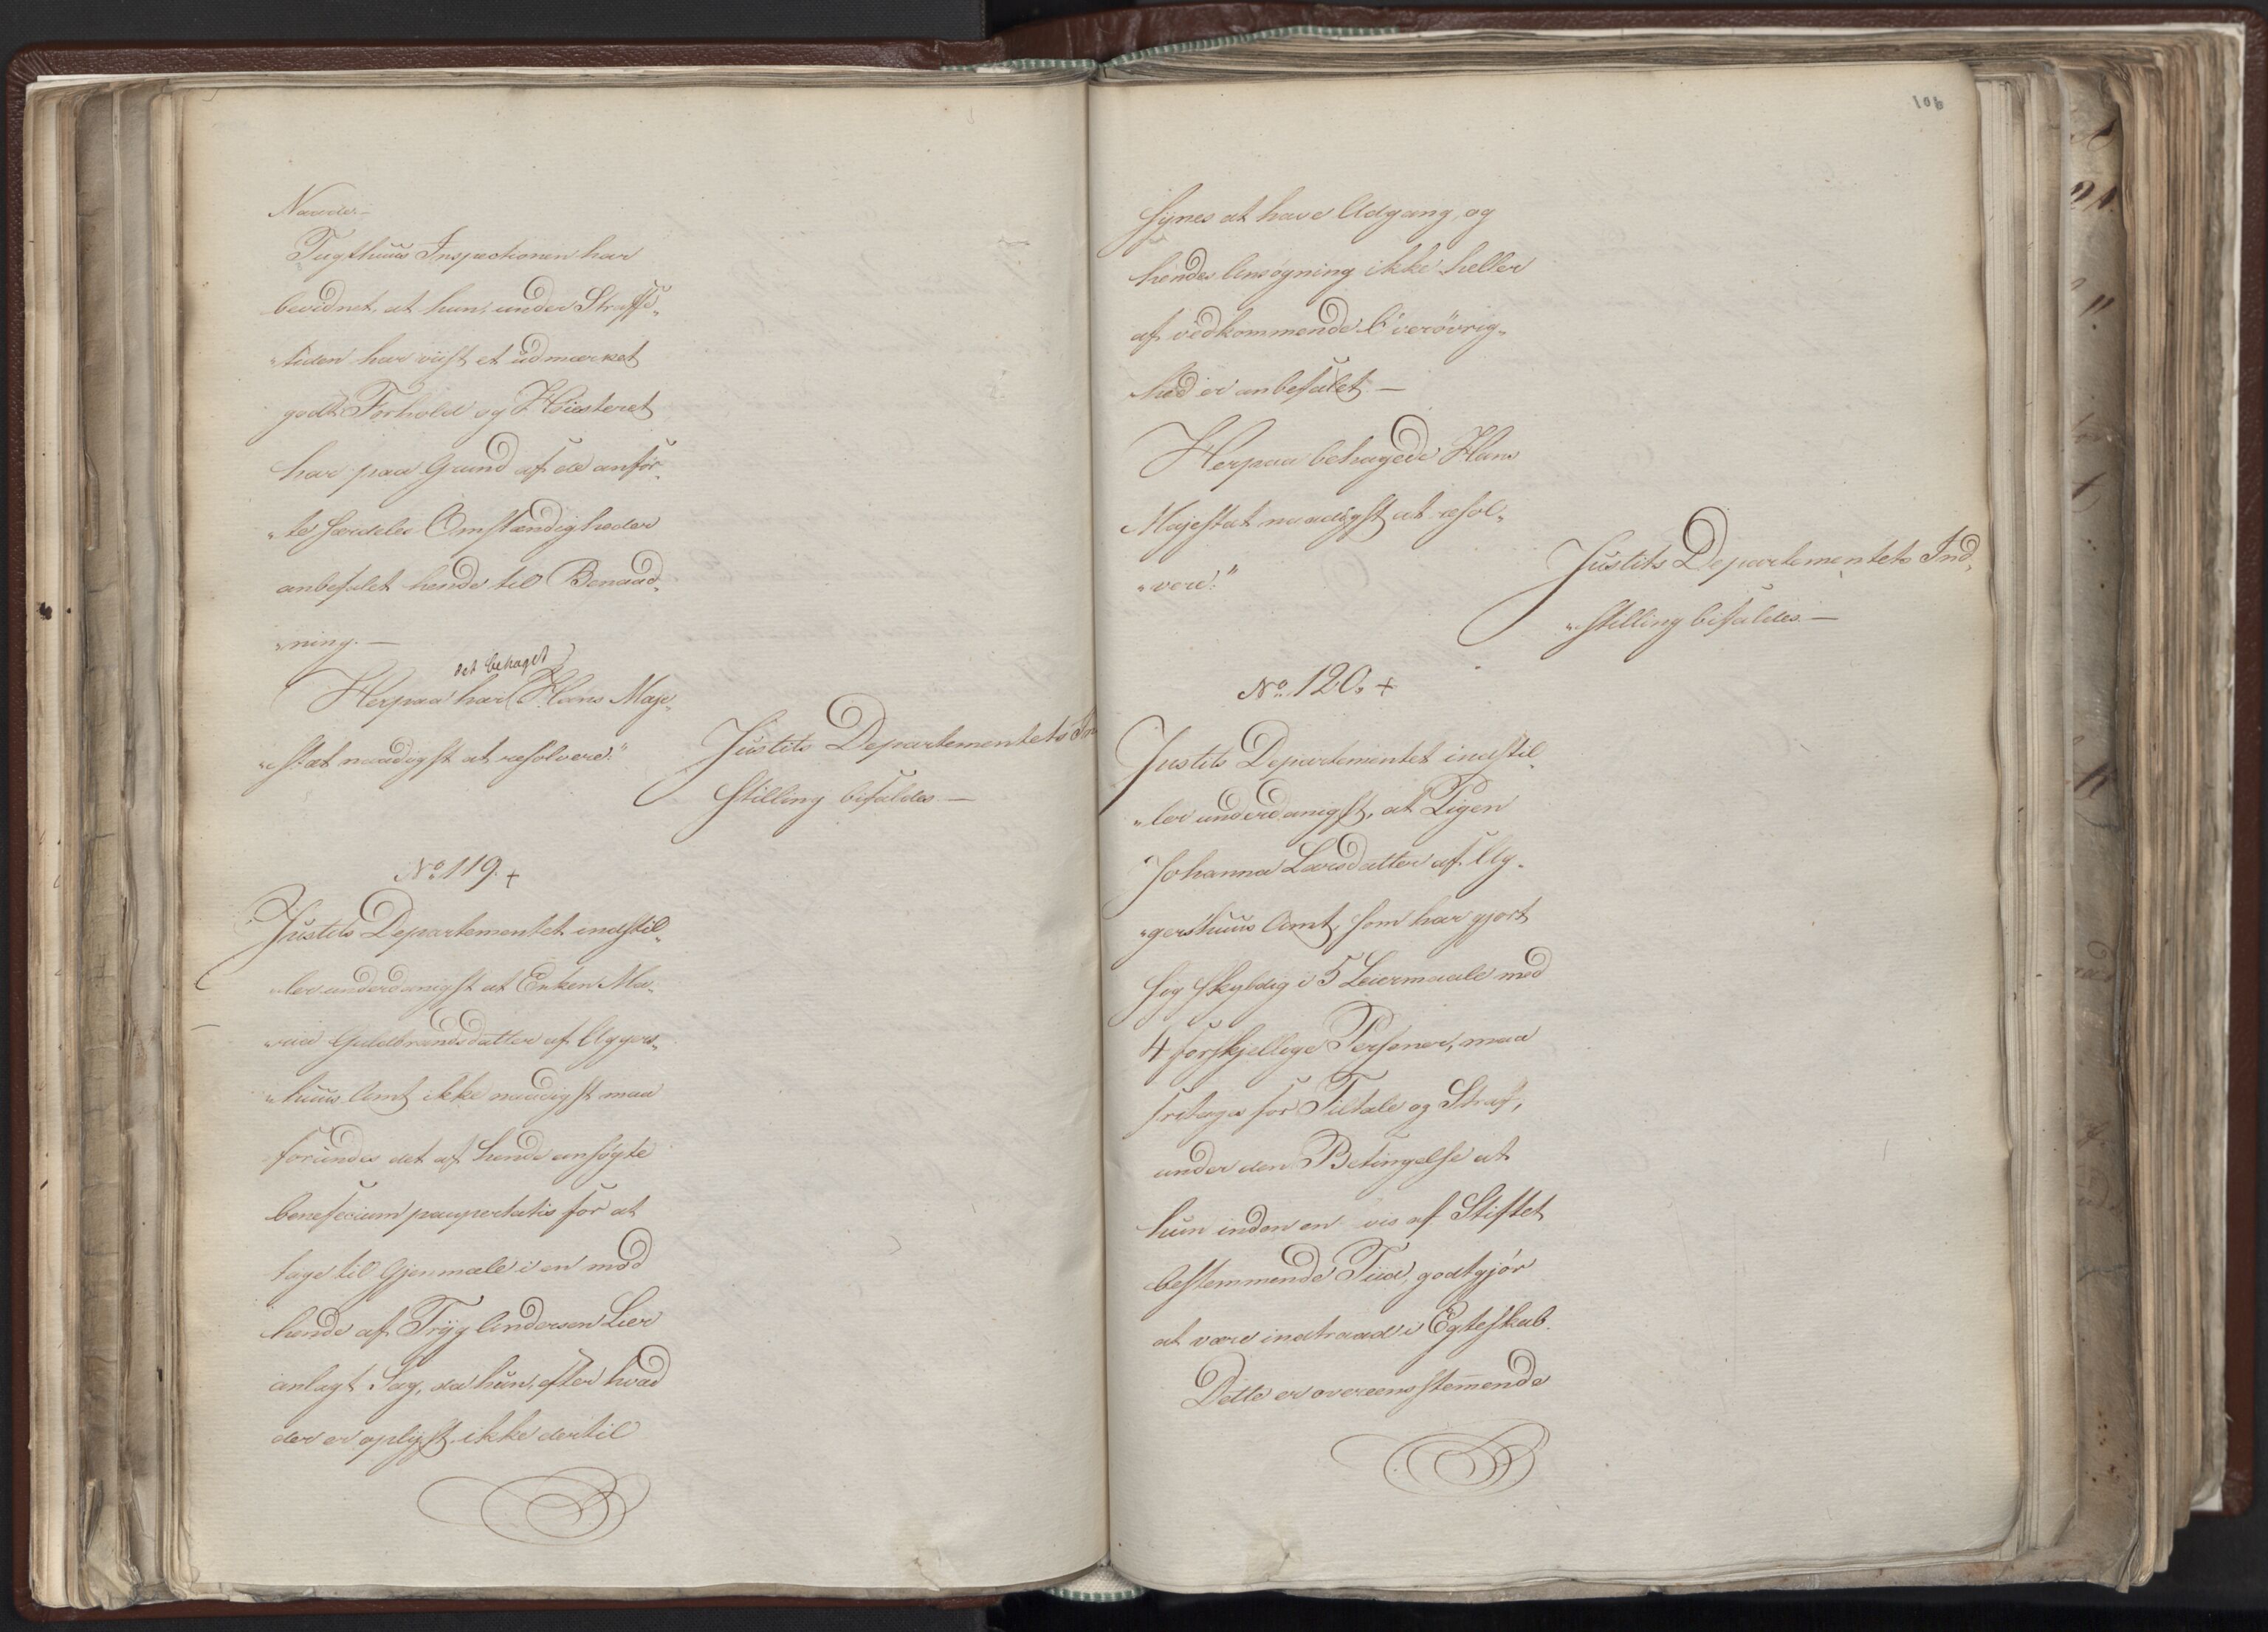 Naade.—
Tugthuus Inspectionen har
bevidnet, at hun, under Straffe„
„tiden har viist et udmærket
godt Forhold og Høiesteret
har paa Grund af de anfør„
„te særdeles Omstændigheder
anbefalet hende til Benaad„
„ning.—
det behaget
Herpaa har Hans Maje„
„stæt naadigst at resolvere:"
Justits Departementets In
stilling bifaldes.—
No 119. +
Justits Departementet indstil„
„ler underdanigst at Enken Ma„
„ria Guldbrandsdatter af Aggers„
„huus Amt ikke naadigst maa
forundes det af hende ansøgte
beneficium paupertatis for at
tage til Gjenmæle i en mod
hende af Tryg Andersen Lier
anlagt Sag, da hun, efter hvad
der er oplyst, ikke dertil
106
synes at have Adgang, og
hendes Ansøgning ikke heller
af vedkommende Överövrig„
hed er anbefalet.—
Herpaa behagede Hans
Majestæt naadigst at resol„
„vere:"
Justits Departementets Ind„
„stilling bifaldes.—
No 120. +
Justits Departementet indstil„
„ler underdanigst, at Pigen
Johanna Larsdatter af Ag„
„gershuus Amt, som har gjort
sig skyldig i 5 Leiermaale med
4 forskjellige Personer, maa
fritages for Tiltale og Straf,
under den Betingelse at
hun inden en vis af Stiftet
bestemmende Tiid, godtgjør
at være indtraadt i Egteskab.
Dette er overeensstemende